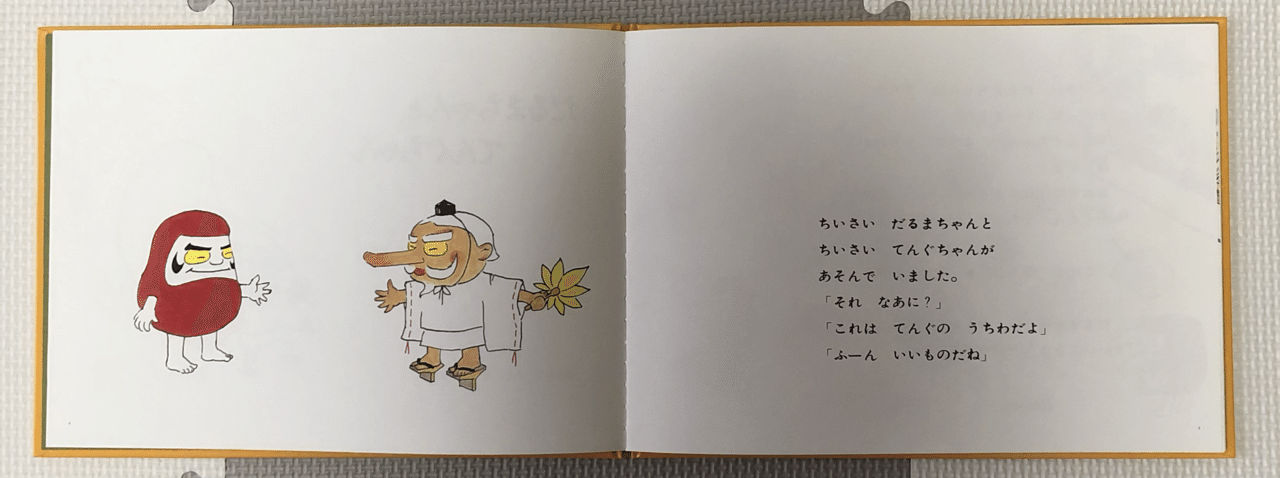 ちいさい　だるまちゃんと
ちいさい　てんぐちゃんが
あそんで　いました。
「それ　なあに？」
「これは　てんぐの　うちわだよ」
「ふーん　いいものだね」